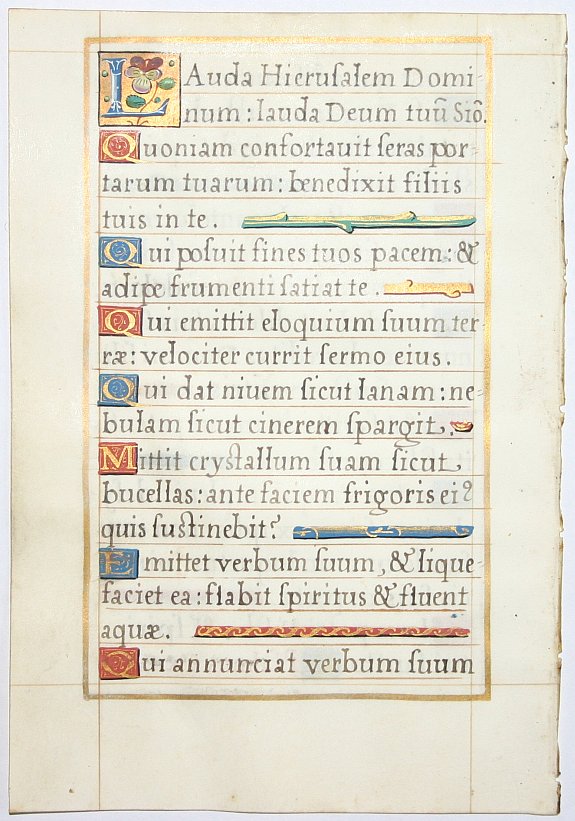 LAuda Hieruſalem Domi-
num: lauda Deum tuū Siō.
Quoniam confortauit ſeras por-
tarum tuarum: benedixit filiis
tuis in te.
Qui poſuit fines tuos pacem: &
adipe frumenti ſatiat te.
Qui emittit eloquium ſuum ter-
ræ: velociter currit ſermo eius.
Qui dat niuem ſicut lanam: ne-
bulam ſicut cinerem ſpargit.
Mittit cryſtallum ſuam ſicut
bucellas: ante faciem frigoris eiꝰ
quis ſuſtinebit?
Emittet verbum ſuum, & lique-
faciet ea: flabit ſpiritus & fluent
aquæ.
Qui annunciat verbum ſuum